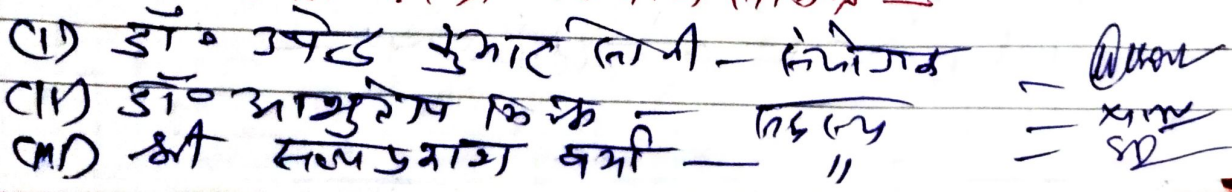 (I) डॉ० उपेन्द्र कुमार सोनी - संयोजक =
(II) डॉ० आशुतोष मिश्र - सदस्य =
(III) श्री सत्यप्रकाश वर्मा - "